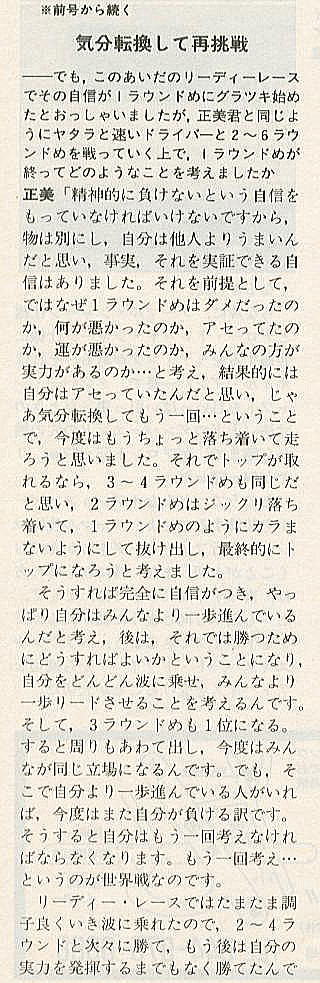 ※前号から続く
気分転換して再挑戦
――でも，このあいだのリーディーレース
でその自信が1ラウンドめにグラツキ始め
たとおっしゃいましたが，正美君と同じよ
うにヤタラと速いドライバーと2～6ラウ
ンドめを戦っていく上で，1ラウンドめが
終ってどのようなことを考えましたか
正美「精神的に負けないという自信を
もっていなければいけないですから，
物は別にし，自分は他人よりうまいん
だと思い，事実，それを実証できる自
信はありました。それを前提として，
ではなぜ1ラウンドめはダメだったの
か，何が悪かったのか，アセってたの
か，運が悪かったのか，みんなの方が
実力があるのか…と考え，結果的には
自分はアセっていたんだと思い，じゃ
あ気分転換してもう一回…ということ
で，今度はもうちょっと落ち着いて走
ろうと思いました。それでトップが取
れるなら，3～4ラウンドめも同じだ
と思い，2ラウンドめはジックリ落ち
着いて，1ラウンドめのようにカラま
ないようにして抜け出し，最終的にト
ップになろうと考えました。
そうすれば完全に自信がつき，やっ
ぱり自分はみんなより一歩進んでいる
んだと考え，後は，それでは勝つため
にどうすればよいかということになり，
自分をどんどん波に乗せ，みんなより
一歩リードさせることを考えるんです。
そして，3ラウンドめも1位になる。
すると周りもあわて出し，今度はみん
なが同じ立場になるんです。でも，そ
こで自分より一歩進んでいる人がいれ
ば，今度はまた自分が負ける訳です。
そうすると自分はもう一回考えなけれ
ばならなくなります。もう一回考え…
というのが世界戦なのです。
リーディー・レースではたまたま調
子良くいき波に乗れたので，2～4ラ
ウンドと次々に勝て，もう後は自分の
実力を発揮するまでもなく勝てたんで